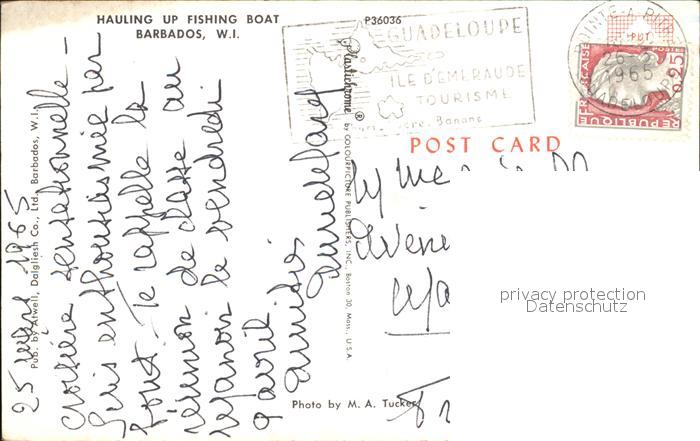 HAULING UP FISHING BOAT
BARBADOS, W.I.
P36036
GUADELOUPE
ILE D'EMERAUDE
TOURISME
Banane
POINTE-A-PITRE
1965
GUADELOUPE
REPUBLIQUE FRANÇAISE
POSTE
0,25
POST CARD
Pub. by Atwell, Dalgliesh Co., Ltd., Barbados, W.I.
Plastichrome ® by COLOURPICTURE PUBLISHERS, INC., Boston 30, Mass., U.S.A.
25 mars 1965
Croisière sensationnelle -
Suis enthousiasmée par
tout - Te rappelle la
réunion de classe au
Manoir le vendredi
9 avril
Amitiés
privacy protection
Datenschutz
Photo by M. A. Tucker